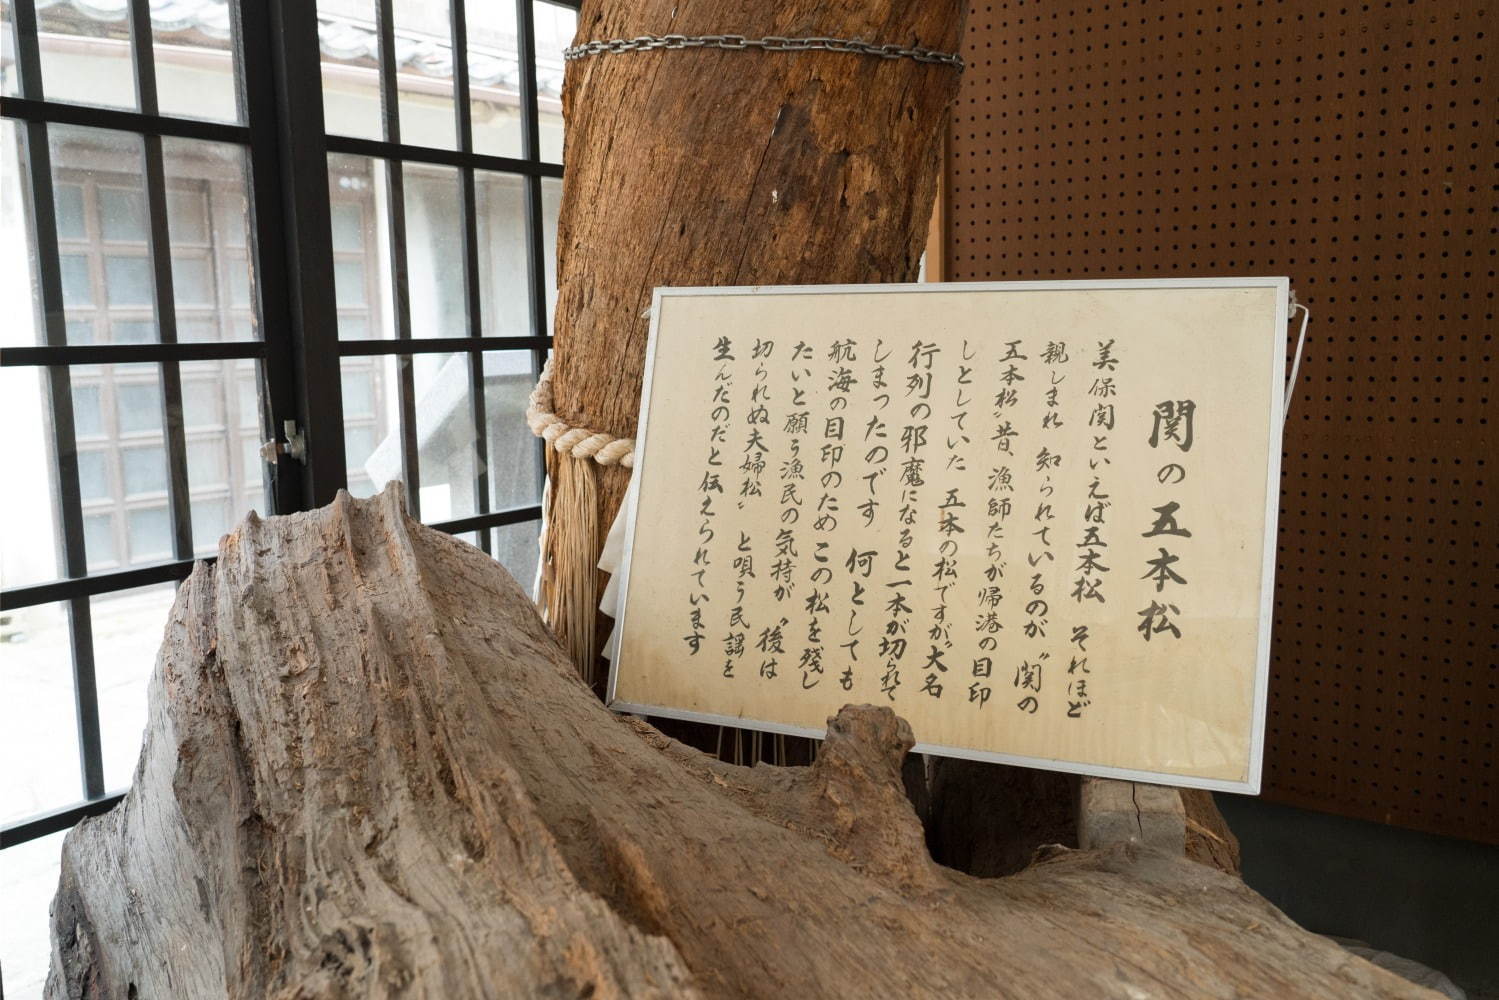 関の五本松
美保関といえば五本松 それほど
親しまれ 知られているのが〝関の
五本松〟昔、漁師たちが帰港の目印
しとしていた 五本の松ですが〝大名
行列の邪魔になると一本が切られて
しまったのです 何としても
航海の目印のため この松を残し
たいと願う漁民の気持が 〝後は
切られぬ夫婦松〟 と唄う民謡を
生んだのだと伝えられています